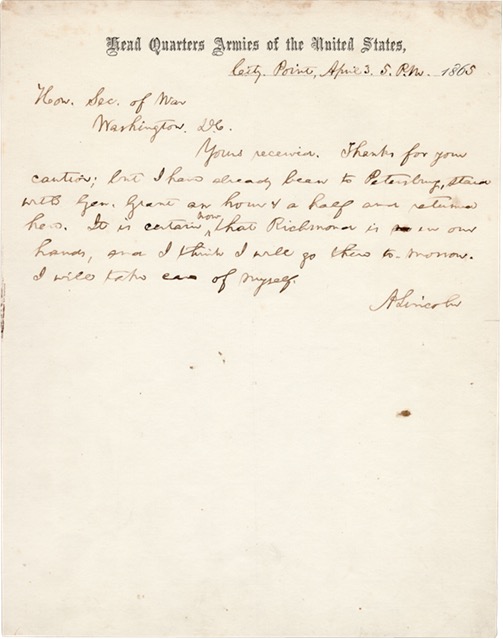 Head Quarters Armies of the United States,
City Point, April 3. 5. P.M. 1865
Hon. Sec. of War
Washington, D.C.
Yours received. Thanks for your
caution; but I have already been to Petersburg, staid
with Gen. Grant an hour & a half and returned
here. It is certain now that Richmond is in our
hands, and I think I will go there to-morrow.
I will take care of myself.
A Lincoln